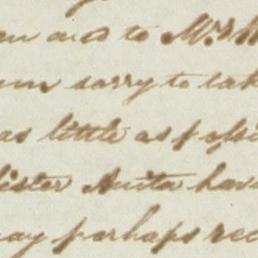 and to Mrs
sorry to tak
as little as possi
sister Anita hav
may perhaps rec